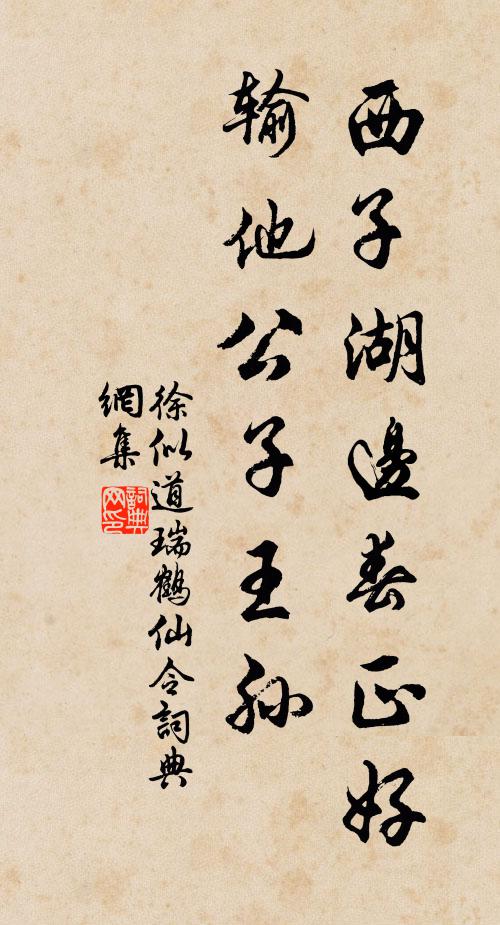 西子湖邊春正好
輸他公子王孫
徐似道瑞鶴仙令詞典
網集
詞典
网印